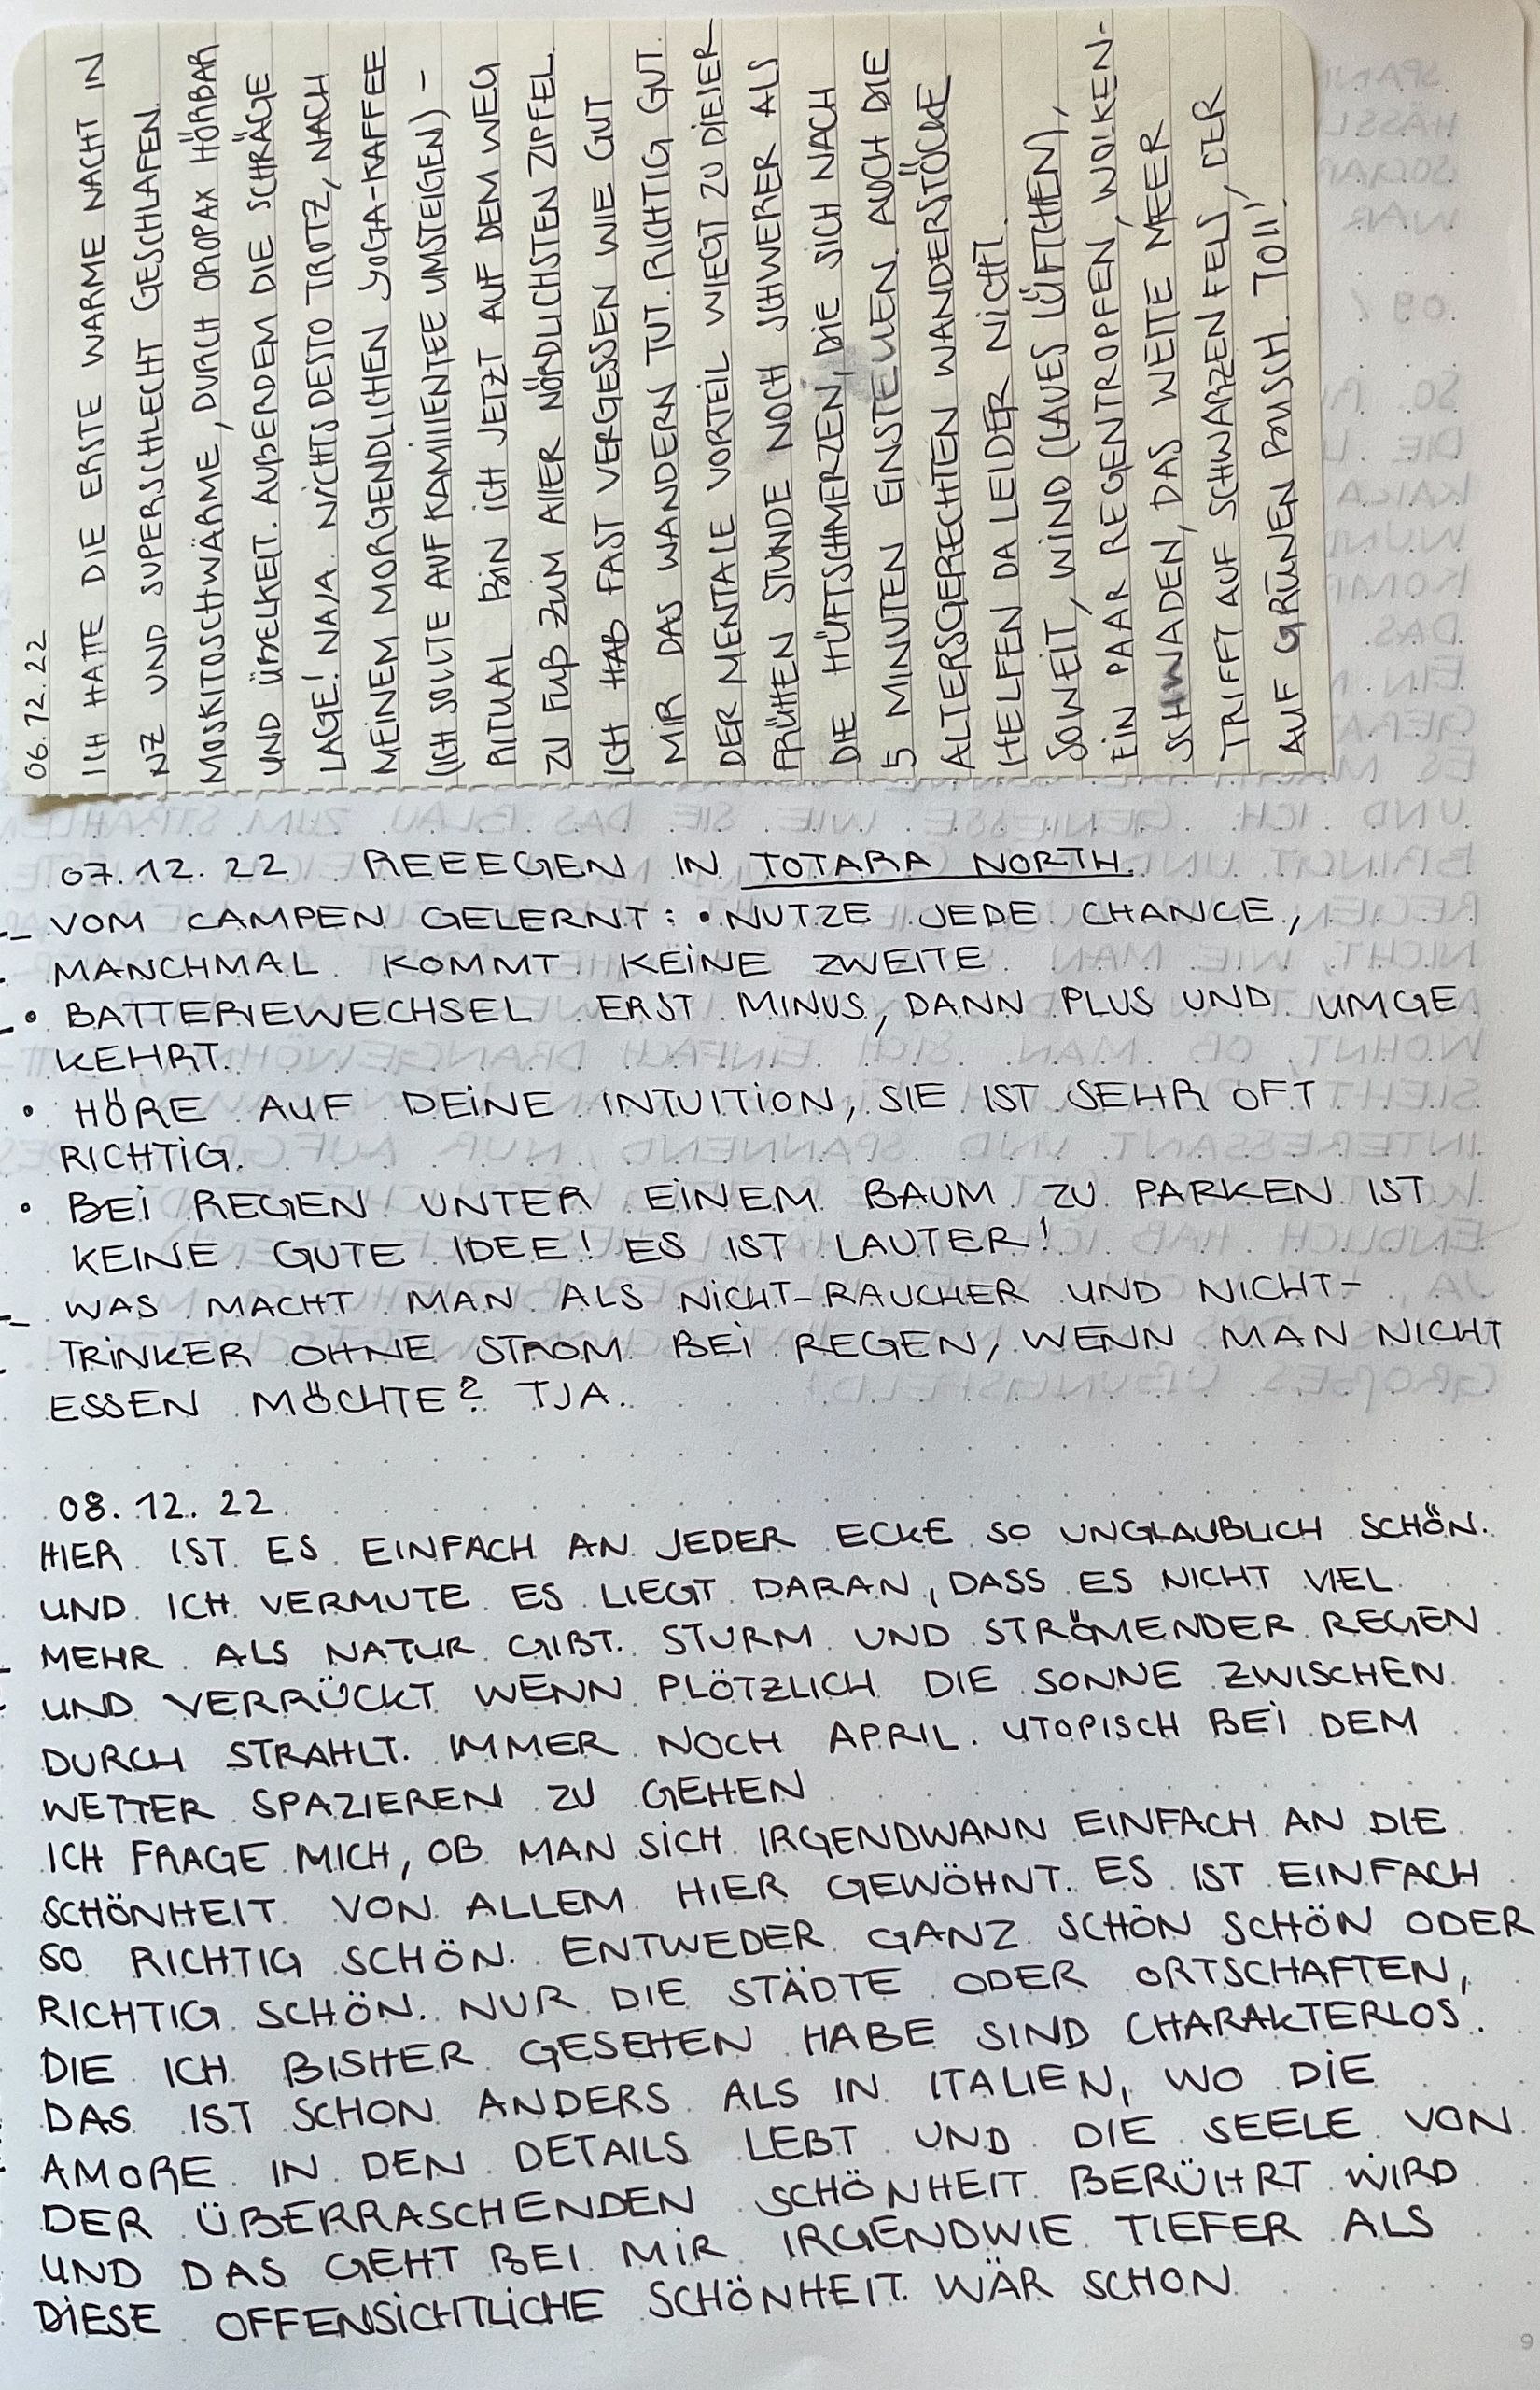 06.12.22
ICH HATTE DIE ERSTE WARME NACHT IN
NZ UND SUPERSCHLECHT GESCHLAFEN.
MOSKITOSCHWÄRME, DURCH OROPAX HÖRBAR
UND ÜBELKEIT. AUßERDEM DIE SCHRÄGE
LAGE! NAJA. NICHTS DESTO TROTZ, NACH
MEINEM MORGENDLICHEN YOGA-KAFFEE
(ICH SOLLTE AUF KAMILLENTEE UMSTEIGEN) -
RITUAL BIN ICH JETZT AUF DEM WEG
ZU FUß ZUM ALLER NÖRDLICHSTEN ZIPFEL.
ICH HAB FAST VERGESSEN WIE GUT
MIR DAS WANDERN TUT. RICHTIG GUT.
DER MENTALE VORTEIL WIEGT ZU DIEER
FRÜHEN STUNDE NOCH SCHWERER ALS
DIE HÜFTSCHMERZEN, DIE SICH NACH
5 MINUTEN EINSTELLEN. AUCH DIE
ALTERSGERECHTEN WANDERSTÖCKE
HELFEN DA LEIDER NICHT.
SOWEIT, WIND (LAUES LÜFTCHEN),
EIN PAAR REGENTROPFEN, WOLKEN-
SCHWADEN, DAS WEITE MEER
TRIFFT AUF SCHWARZEN FELS, DER
AUF GRÜNEN BUSCH. TOLL!
07.12.22 REEEGEN IN TOTARA NORTH.
VOM CAMPEN GELERNT: • NUTZE JEDE CHANCE,
MANCHMAL KOMMT KEINE ZWEITE
• BATTERIEWECHSEL ERST MINUS, DANN PLUS UND UMGE
KEHRT.
• HÖRE AUF DEINE INTUITION, SIE IST SEHR OFT
RICHTIG.
• BEI REGEN UNTER EINEM BAUM ZU PARKEN IST
KEINE GUTE IDEE! ES IST LAUTER!
WAS MACHT MAN ALS NICHT-RAUCHER UND NICHT-
TRINKER OHNE STROM BEI REGEN, WENN MAN NICHT
ESSEN MÖCHTE? TJA.
08.12.22
HIER IST ES EINFACH AN JEDER ECKE SO UNGLAUBLICH SCHÖN.
UND ICH VERMUTE ES LIEGT DARAN, DASS ES NICHT VIEL
MEHR ALS NATUR GIBT. STURM UND STRÖMENDER REGEN
UND VERRÜCKT WENN PLÖTZLICH DIE SONNE ZWISCHEN
DURCH STRAHLT. IMMER NOCH APRIL. UTOPISCH BEI DEM
WETTER SPAZIEREN ZU GEHEN
ICH FRAGE MICH, OB MAN SICH IRGENDWANN EINFACH AN DIE
SCHÖNHEIT VON ALLEM HIER GEWÖHNT. ES IST EINFACH
SO RICHTIG SCHÖN. ENTWEDER GANZ SCHÖN SCHÖN ODER
RICHTIG SCHÖN. NUR DIE STÄDTE ODER ORTSCHAFTEN,
DIE ICH BISHER GESEHEN HABE SIND CHARAKTERLOS.
DAS IST SCHON ANDERS ALS IN ITALIEN, WO DIE
AMORE IN DEN DETAILS LEBT UND DIE SEELE VON
DER ÜBERRASCHENDEN SCHÖNHEIT BERÜHRT WIRD
UND DAS GEHT BEI MIR IRGENDWIE TIEFER ALS
DIESE OFFENSICHTLICHE SCHÖNHEIT. WÄR SCHON
9